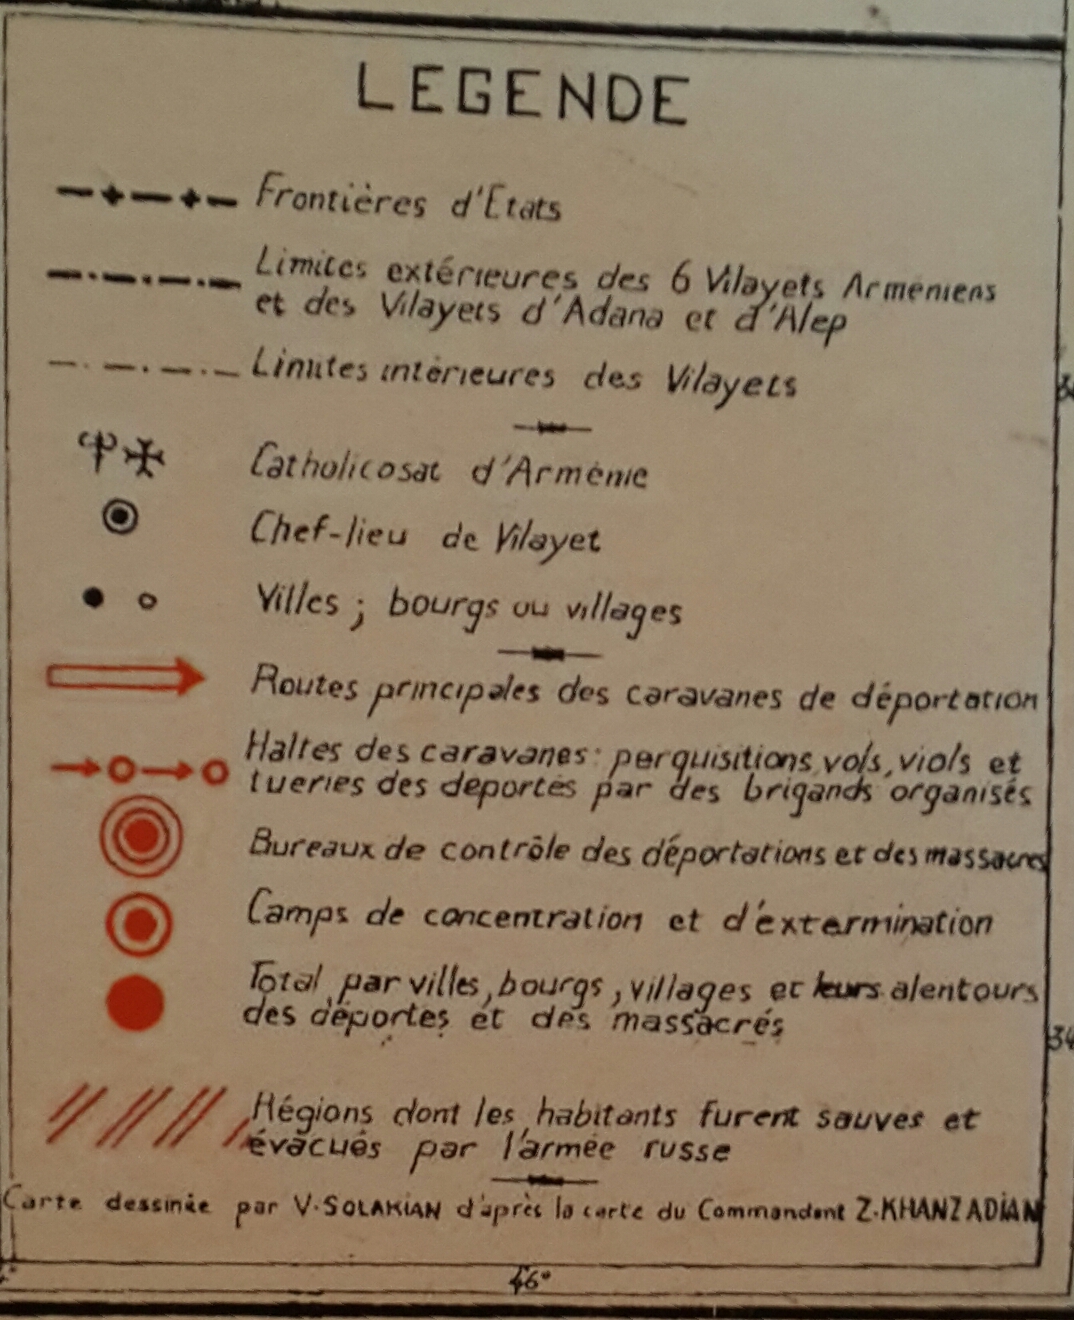 LEGENDE
Frontières d'Etats
Limites extérieures des 6 Vilayets Arméniens
et des Vilayets d'Adana et d'Alep
Limites intérieures des Vilayets
Catholicosat d'Arménie
Chef-lieu de Vilayet
Villes ; bourgs ou villages
Routes principales des caravanes de déportation
Haltes des caravanes: perquisitions, vols, viols et
tueries des déportés par des brigands organisés
Bureaux de contrôle des déportations et des massacres
Camps de concentration et d'éxtermination
Total par villes, bourgs, villages et leurs alentours
des déportés et des massacrés
34
Régions dont les habitants furent sauvés et
évacués par l'armée russe
Carte dessinée par V. SOLAKIAN d'après la carte du Commandant Z. KHANZADIAN
46°